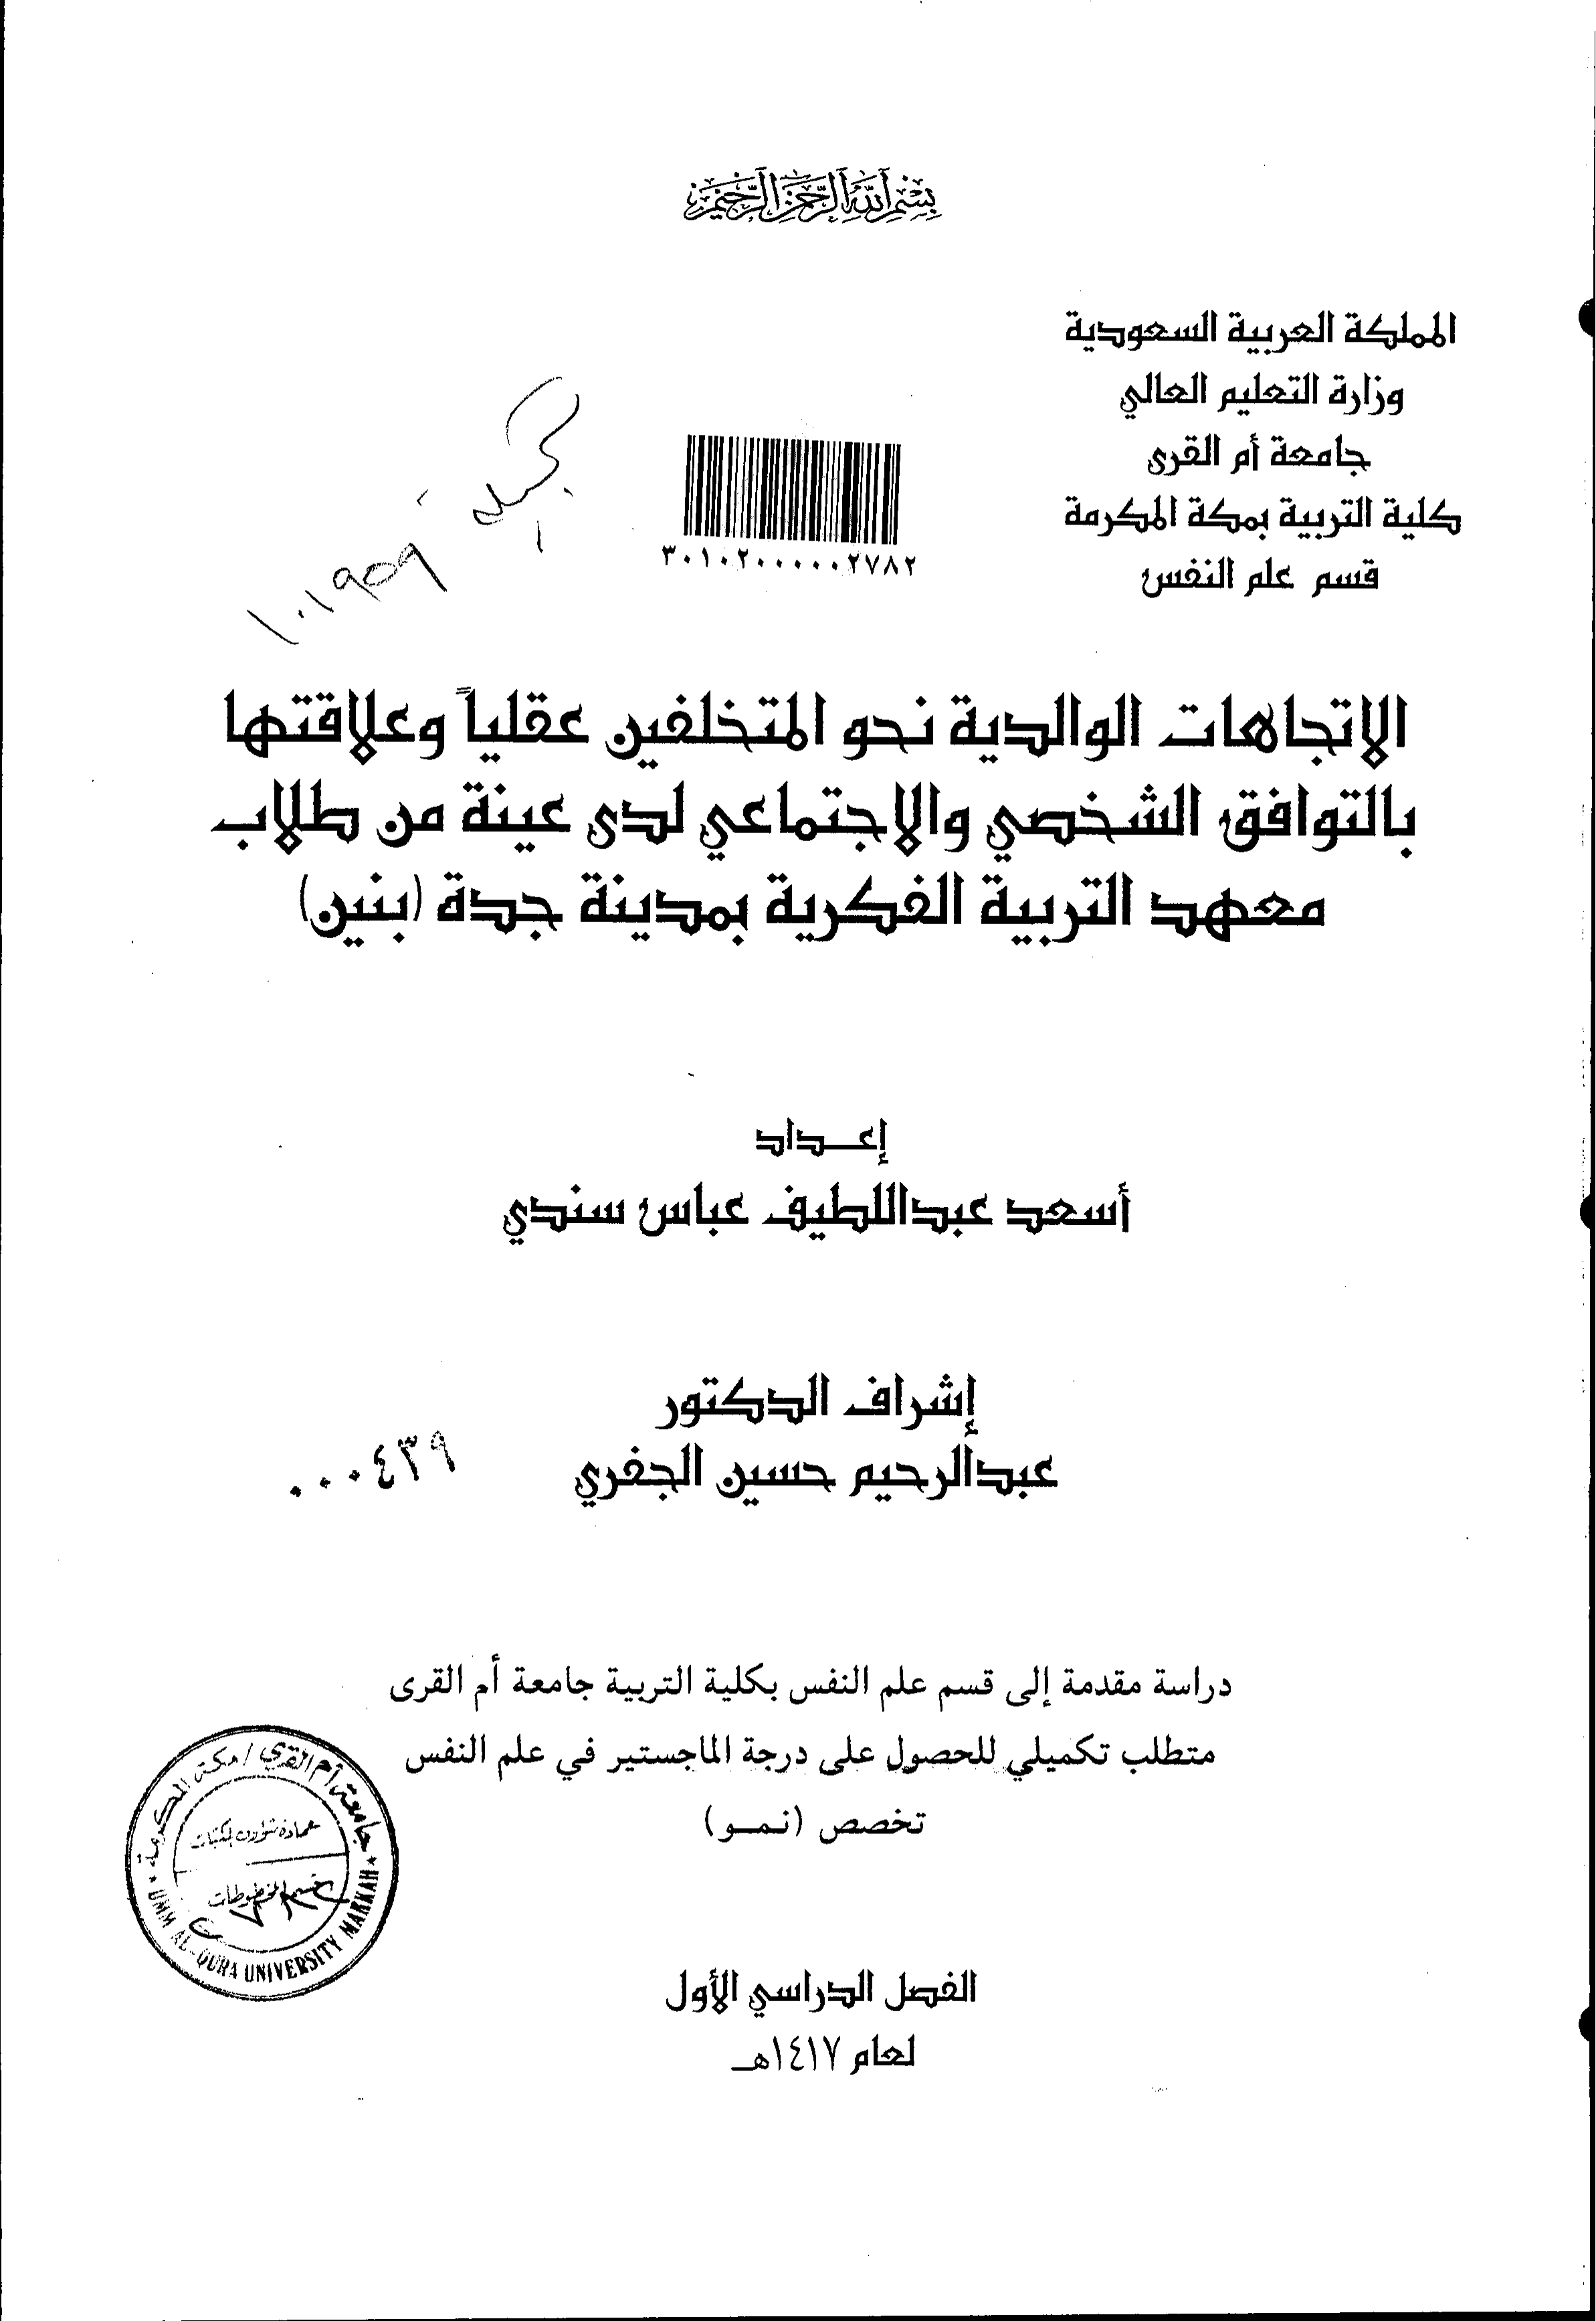 بسم الله الرحمن الرحيم
المملكة العربية السعودية
وزارة التعليم العالي
جامعة أم القرى
كلية التربية بمكة المكرمة
قسم علم النفس
٣٠١٠٢٠٠٠٠٠٢٧٨٢
١٠١٩٥٩
الاتجاهات الوالدية نحو المتخلفين عقلياً وعلاقتها
بالتوافق الشخصي والاجتماعي لدى عينة من طلاب
معهد التربية الفكرية بمدينة جدة (بنين)
إعـــداد
أسعد عبداللطيف عباس سندي
إشراف الدكتور
عبدالرحيم حسين الجفري
٠٠٠٤٣٩
دراسة مقدمة إلى قسم علم النفس بكلية التربية جامعة أم القرى
متطلب تكميلي للحصول على درجة الماجستير في علم النفس
تخصص (نـمــو)
جامعة أم القرى / مكة المكرمة
عمادة شؤون المكتبات
قسم المخطوطات
UMM AL-QURA UNIVERSITY MAKKAH
الفصل الدراسي الأول
لعام ١٤١٧هـ